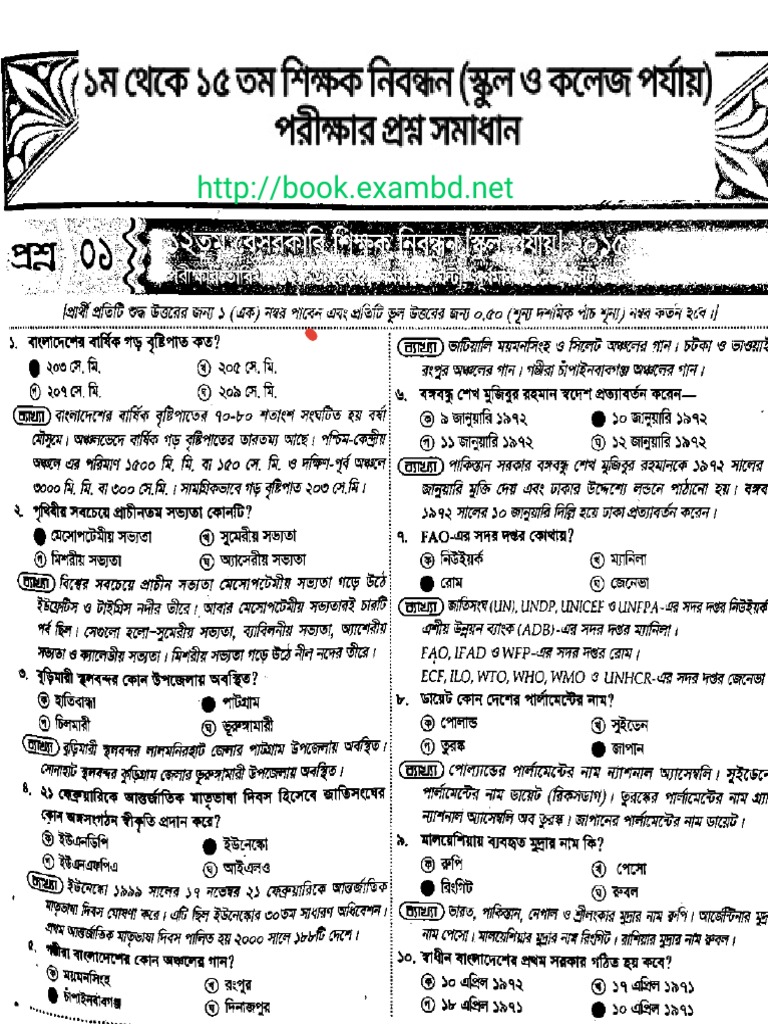 ১ম থেকে ১৫ তম শিক্ষক নিবন্ধন (স্কুল ও কলেজ পর্যায়)
পরীক্ষার প্রশ্ন সমাধান
http://book.exambd.net
প্রশ্ন ০১
১২তম বেসরকারি শিক্ষক নিবন্ধন (স্কুল পর্যায়) ২০১৫
[প্রার্থী প্রতিটি শুদ্ধ উত্তরের জন্য ১ (এক) নম্বর পাবেন এবং প্রতিটি ভুল উত্তরের জন্য ০.৫০ (শূন্য দশমিক পাঁচ শূন্য) নম্বর কর্তন হবে।]
১. বাংলাদেশের বার্ষিক গড় বৃষ্টিপাত কত?
২০৩ সে. মি. খ ২০৫ সে. মি.
গ ২০৭ সে. মি. ঘ ২০৯ সে. মি.
ব্যাখ্যা বাংলাদেশের বার্ষিক বৃষ্টিপাতের ৭০-৮০ শতাংশ সংঘটিত হয় বর্ষা
মৌসুমে। অঞ্চলভেদে বার্ষিক গড় বৃষ্টিপাতের তারতম্য আছে। পশ্চিম-কেন্দ্রীয়
অঞ্চলে এর পরিমাণ ১৫০০ মি. মি. বা ১৫০ সে. মি. ও দক্ষিণ-পূর্ব অঞ্চলে
৩০০০ মি. মি. বা ৩০০ সে.মি.। সামগ্রিকভাবে গড় বৃষ্টিপাত ২০৩ সে.মি.।
২. পৃথিবীর সবচেয়ে প্রাচীনতম সভ্যতা কোনটি?
মেসোপটেমীয় সভ্যতা খ সুমেরীয় সভ্যতা
গ মিশরীয় সভ্যতা ঘ অ্যাসেরীয় সভ্যতা
ব্যাখ্যা বিশ্বের সবচেয়ে প্রাচীন সভ্যতা মেসোপটেমীয় সভ্যতা গড়ে উঠে
ইউফ্রেটিস ও টাইগ্রিস নদীর তীরে। আবার মেসোপটেমীয় সভ্যতারই চারটি
পর্ব ছিল। সেগুলো হলো–সুমেরীয় সভ্যতা, ব্যাবিলনীয় সভ্যতা, অ্যাশেরীয়
সভ্যতা ও ক্যালেডীয় সভ্যতা। মিশরীয় সভ্যতা গড়ে উঠে নীল নদের তীরে।
৩. বুড়িমারী স্থলবন্দর কোন উপজেলায় অবস্থিত?
ক হাতিবান্ধা পাটগ্রাম
গ চিলমারী ঘ ভূরুঙ্গামারী
ব্যাখ্যা বুড়িমারী স্থলবন্দর লালমনিরহাট জেলার পাটগ্রাম উপজেলায় অবস্থিত।
সোনাহাট স্থলবন্দর কুড়িগ্রাম জেলার ভূরুঙ্গামারী উপজেলায় অবস্থিত।
৪. ২১ ফেব্রুয়ারিকে আন্তর্জাতিক মাতৃভাষা দিবস হিসেবে জাতিসংঘের
কোন অঙ্গসংগঠন স্বীকৃতি প্রদান করে?
ক ইউএনডিপি ইউনেস্কো
গ ইউএনএফপিএ ঘ আইএলও
ব্যাখ্যা ইউনেস্কো ১৯৯৯ সালের ১৭ নভেম্বর ২১ ফেব্রুয়ারিকে আন্তর্জাতিক
মাতৃভাষা দিবস ঘোষণা করে। এটি ছিল ইউনেস্কোর ৩০তম সাধারণ অধিবেশন।
প্রথম আন্তর্জাতিক মাতৃভাষা দিবস পালিত হয় ২০০০ সালে ১৮৮টি দেশে।
৫. গম্ভীরা বাংলাদেশের কোন অঞ্চলের গান?
ক ময়মনসিংহ খ রংপুর
চাঁপাইনবাবগঞ্জ ঘ দিনাজপুর
ব্যাখ্যা ভাটিয়ালি ময়মনসিংহ ও সিলেট অঞ্চলের গান। চটকা ও ভাওয়াই
রংপুর অঞ্চলের গান। গম্ভীরা চাঁপাইনবাবগঞ্জ অঞ্চলের গান।
৬. বঙ্গবন্ধু শেখ মুজিবুর রহমান স্বদেশ প্রত্যাবর্তন করেন—
ক ৯ জানুয়ারি ১৯৭২ ১০ জানুয়ারি ১৯৭২
গ ১১ জানুয়ারি ১৯৭২ ঘ ১২ জানুয়ারি ১৯৭২
ব্যাখ্যা পাকিস্তান সরকার বঙ্গবন্ধু শেখ মুজিবুর রহমানকে ১৯৭২ সালের
জানুয়ারি মুক্তি দেয় এবং ঢাকার উদ্দেশ্যে লন্ডনে পাঠানো হয়। বঙ্গব
১৯৭২ সালের ১০ জানুয়ারি দিল্লি হয়ে ঢাকা প্রত্যাবর্তন করেন।
৭. FAO-এর সদর দপ্তর কোথায়?
ক নিউইয়র্ক খ ম্যানিলা
রোম ঘ জেনেভা
ব্যাখ্যা জাতিসংঘ (UN), UNDP, UNICEF ও UNFPA-এর সদর দপ্তর নিউইয়র্ক
এশীয় উন্নয়ন ব্যাংক (ADB)-এর সদর দপ্তর ম্যানিলা।
FAO, IFAD ও WFP-এর সদর দপ্তর রোম।
ECF, ILO, WTO, WHO, WMO ও UNHCR-এর সদর দপ্তর জেনেভা
৮. ডায়েট কোন দেশের পার্লামেন্টের নাম?
ক পোলান্ড খ সুইডেন
গ তুরস্ক জাপান
ব্যাখ্যা পোল্যান্ডের পার্লামেন্টের নাম ন্যাশনাল অ্যাসেম্বলি। সুইডেনে
পার্লামেন্টের নাম ডায়েট (রিকসডাগ)। তুরস্কের পার্লামেন্টের নাম গ্র্যা
ন্যাশনাল অ্যাসেম্বলি অব তুরস্ক। জাপানের পার্লামেন্টের নাম ডায়েট।
৯. মালয়েশিয়ায় ব্যবহৃত মুদ্রার নাম কি?
ক রুপি খ পেসো
রিংগিট ঘ রুবল
ব্যাখ্যা ভারত, পাকিস্তান, নেপাল ও শ্রীলংকার মুদ্রার নাম রুপি। আর্জেন্টিনার মুদ্র
নাম পেসো। মালয়েশিয়ার মুদ্রার নাম রিংগিট। রাশিয়ার মুদ্রার নাম রুবল।
১০. স্বাধীন বাংলাদেশের প্রথম সরকার গঠিত হয় কবে?
ক ১০ এপ্রিল ১৯৭২ খ ১৭ এপ্রিল ১৯৭১
গ ১৮ এপ্রিল ১৯৭১ ১০ এপ্রিল ১৯৭১